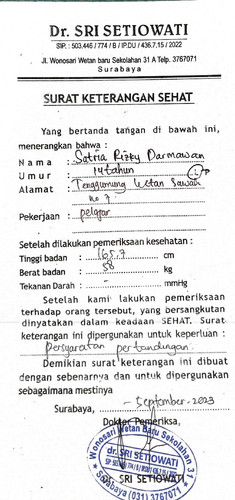 Dr. SRI SETIOWATI
SIP. : 503.446 / 774 / B / IP.DU / 436.7.15 / 2022
Jl. Wonosari Wetan baru Sekolahan 31 A Telp. 3767071
Surabaya
SURAT KETERANGAN SEHAT
Yang bertanda tangan di bawah ini,
menerangkan bahwa :
Nama : Satria Rizky Darmawan
Umur : 14 tahun
Alamat : Tenggumung Wetan Sawah
no 7
Pekerjaan : pelajar
Setelah dilakukan pemeriksaan kesehatan :
Tinggi badan : 165.7 cm
Berat badan : 58 kg
Tekanan Darah : - mmHg
Setelah kami lakukan pemeriksaan
terhadap orang tersebut, yang bersangkutan
dinyatakan dalam keadaan SEHAT. Surat
keterangan ini dipergunakan untuk keperluan :
Persyaratan pertandingan.
Demikian surat keterangan ini dibuat
dengan sebenarnya dan untuk dipergunakan
sebagaimana mestinya
Surabaya, - September - 2023
Dokter Pemeriksa,
Wonosari Wetan Baru Sekolahan 31
Dr. SRI SETIOWATI
Surabaya (031) 376707
Dr. SRI SETIOWATI